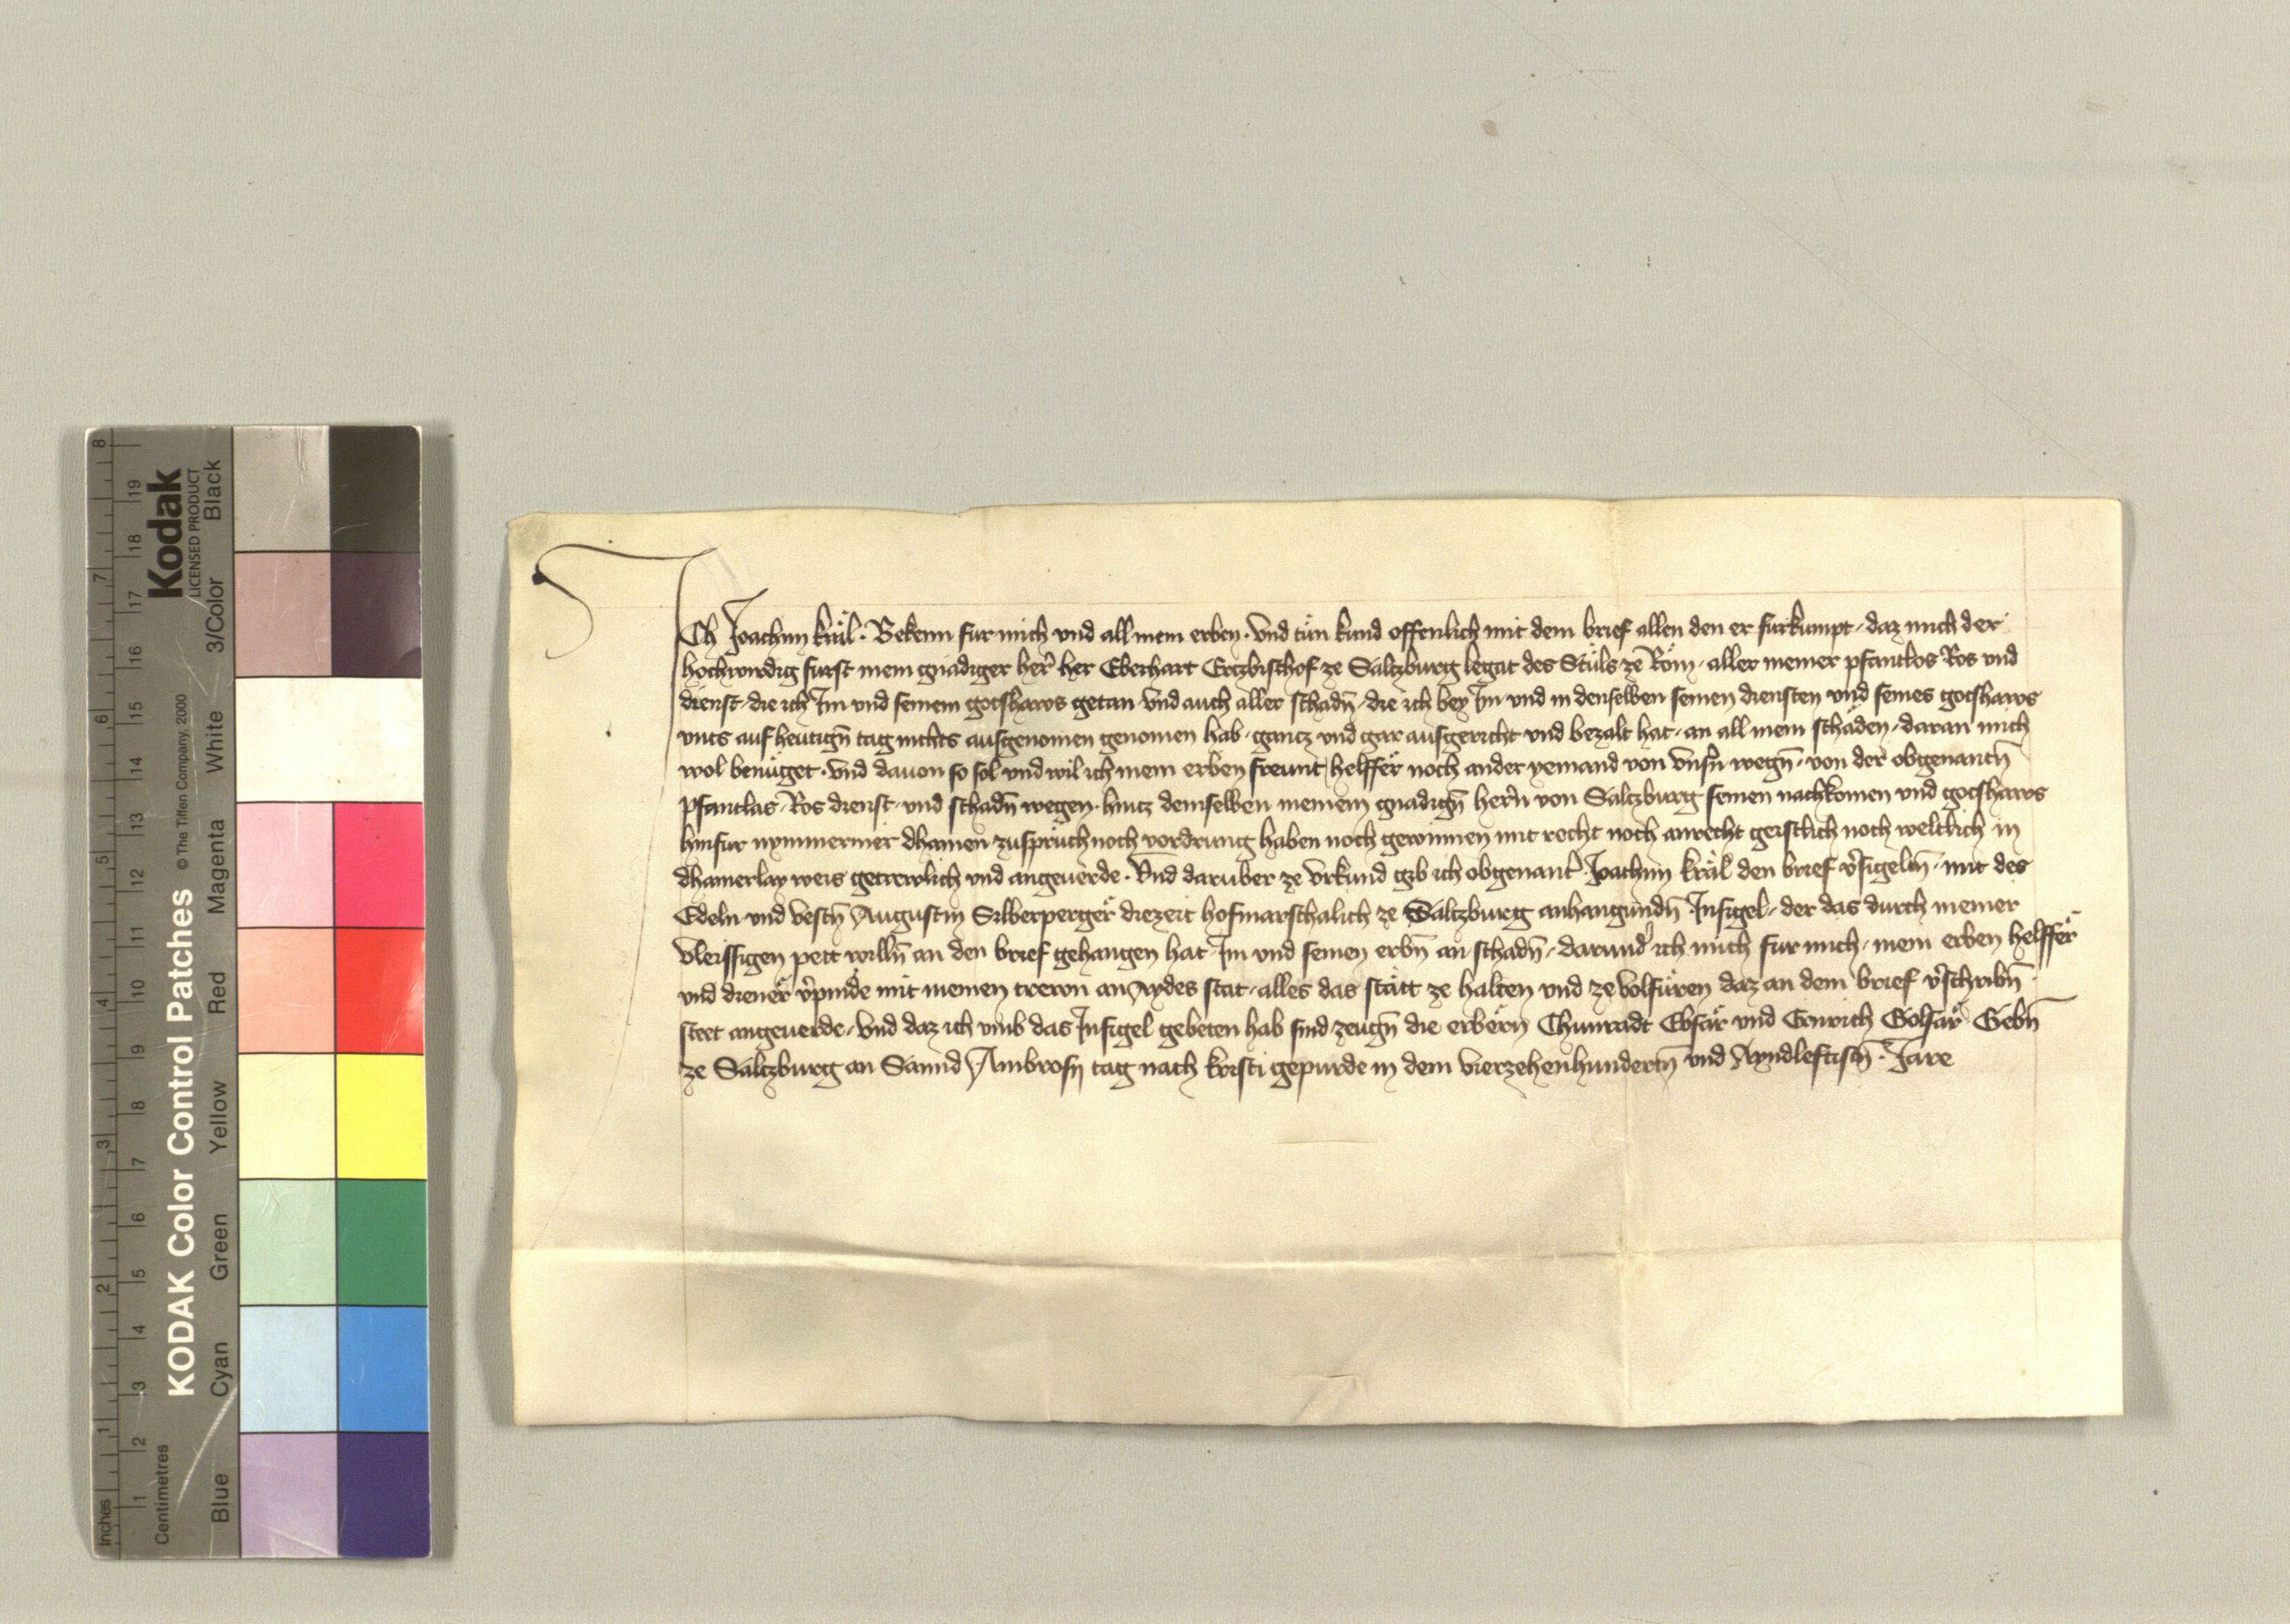 Ich Joachim kräl. Bekenn fur mich vnd all mein erben. vnd tůn kund offenlich mit dem brief allen den er furkumpt, daz mich der
hochwirdig furst mein gnadiger her̄ her Eberhart Ertzbischof ze Saltzburg legat des Stůls ze Rom, aller meiner pfantlos Ros vnd
dienst, die ich Im vnd seinem gotshaws getan vnd auch aller schadn̄, die ich bey Im vnd in denselben seinen diensten vnd seines gotshaws
vncz auf heutign̄ tag nichts ausgenomen genomen hab, gancz vnd gar ausgericht vnd bezalt hat, an all mein schäden, daran mich
wol benüget. vnd dauon so sol vnd wil ich mein erben freunt helffer noch ander yemand von vnsn̄ wegn̄, von der obgenantn̄
pfantlas, Ros dienst, vnd schadn̄ wegen, hincz demselben meinem gnadign̄ hern̄ von Saltzburg seinen nachkomen vnd gotshaws
hinfur nymmermer dhainen zuspruch noch vordrung haben noch gewinnen mit recht noch anrecht geistlich noch weltlich in
dhainerlay weis getrewlich vnd angeuerde. Vnd daruber ze vrkund gib ich obgenant̄ Joachim kräl den brief v̄sigeltn̄, mit des
Edeln vnd vestn̄ Augustin Silberperger diezeit hofmarschalich ze Saltzburg anhangundn̄ Insigel, der das durch meiner
vleissigen pett willn̄ an den brief gehangen hat, Im vnd seinen erbn̄ an schadn̄, darund̄ ich mich fur mich, mein erben helffer
vnd diener v̄pinde mit meinen trewn an Aydes stat, alles das stätt ze halten vnd ze volfüren daz an dem brief v̄schribn̄
stet angeuerde, vnd daz ich vmb das Insigel gebeten hab sind zeugn̄ die erbern Chunradt Ebsär vnd Hainrich Golsär Gebn̄
ze Saltzburg an Sannd Ambrosy tag nach kristi gepurde in dem vierzehenhundertn̄ vnd Ayndleftisn̄. Jare
KODAK Color Control Patches
© The Tiffen Company, 2000
Kodak
LICENSED PRODUCT
Blue Cyan Green Yellow Red Magenta White 3/Color Black
Inches 1 2 3 4 5 6 7 8
Centimetres 1 2 3 4 5 6 7 8 9 10 11 12 13 14 15 16 17 18 19